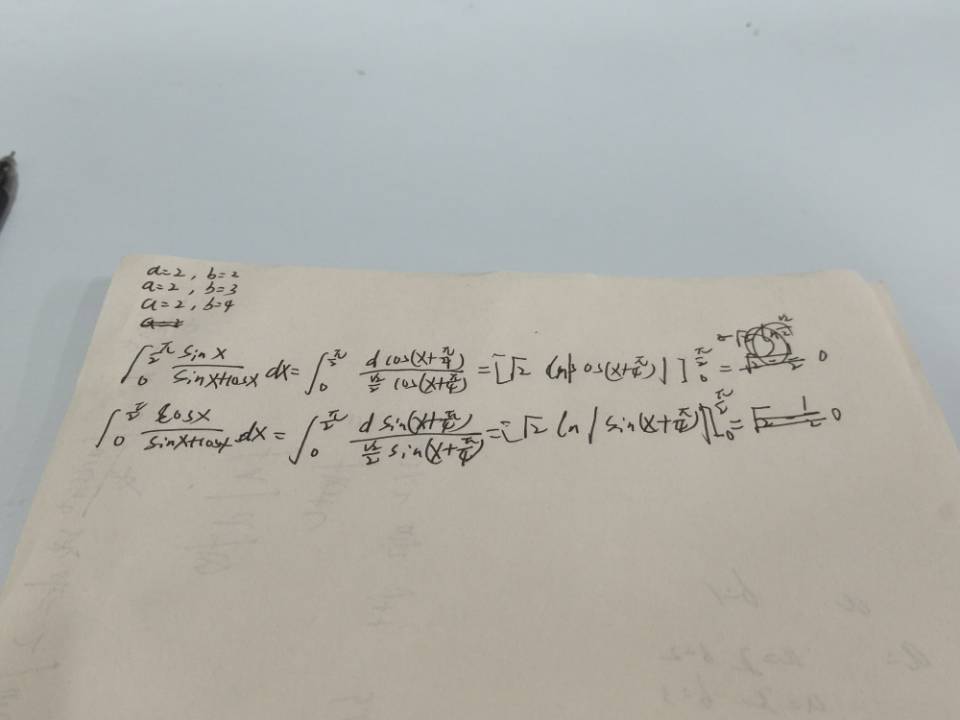 a=2, b=2
a=2, b=3
a=2, b=4
∫₀^(π/2) sin x / (sin x + cos x) dx = ∫₀^(π/2) d cos(x+π/4) / (√2/2 cos(x+π/4)) = [√2 ln|cos(x+π/4)|]₀^(π/2) = 0
∫₀^(π/2) cos x / (sin x + cos x) dx = ∫₀^(π/2) d sin(x+π/4) / (√2/2 sin(x+π/4)) = [√2 ln|sin(x+π/4)|]₀^(π/2) = 0